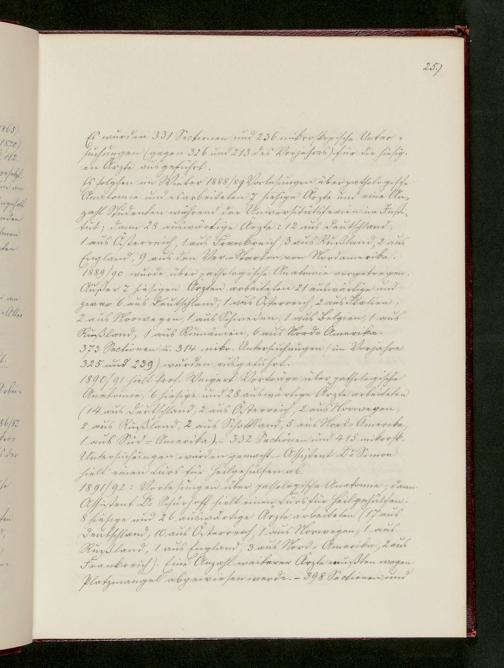 25.)
Es wurden 331 Sectionen und 236 mikroskopische Unter-
suchungen (gegen 326 und 213 des Vorjahres) für die hiesig-
en Ärzte ausgeführt.
Es folgten im Winter 1888/89 Vorlesungen über pathologische
Anatomie und es arbeiteten 7 hiesige Ärzte und eine An-
zahl Studenten während der Universitätsferien im Insti-
tut; dann 28 auswärtige Ärzte: 12 aus Deutschland,
1 aus Österreich, 1 aus Frankreich, 3 aus Rußland, 2 aus
England, 9 aus den Ver. Staaten von Nordamerika.
1889/90 wurde über pathologische Anatomie vorgetragen.
Außer 7 hiesigen Ärzten arbeiteten 21 auswärtige und
zwar 6 aus Deutschland, 1 aus Österreich, 2 aus Italien,
2 aus Norwegen, 1 aus Schweden, 1 aus Belgien, 1 aus
Rußland, 1 aus Rumänien, 6 aus Nord-Amerika.
373 Sectionen u. 314 mikr. Untersuchungen (im Vorjahre
325 und 239) wurden ausgeführt.
1890/91 hielt Prof. Weigert Vorträge über pathologische
Anatomie, 6 hiesige und 28 auswärtige Ärzte arbeiteten
(14 aus Deutschland, 2 aus Österreich, 2 aus Norwegen,
2 aus Rußland, 2 aus Schottland, 5 aus Nord-Amerika,
1 aus Süd-Amerika) - 332 Sectionen und 415 mikrosk.
Untersuchungen wurden gemacht - Assistent Dr Simon
hielt einen Curs für Heilgehülfen ab.
1891/92: Vorlesungen über pathologische Anatomie; dann
Assistent Dr hielt einen Curs für Heilgehülfen.
8 hiesige und 26 auswärtige Ärzte arbeiteten (17 aus
Deutschland, 10 aus Österreich, 1 aus Norwegen, 1 aus
Rußland, 1 aus England, 3 aus Nord-Amerika, 2 aus
Frankreich). Eine Anzahl weiterer Ärzte mußten wegen
Platzmangel abgewiesen werde. - 398 Sectionen und